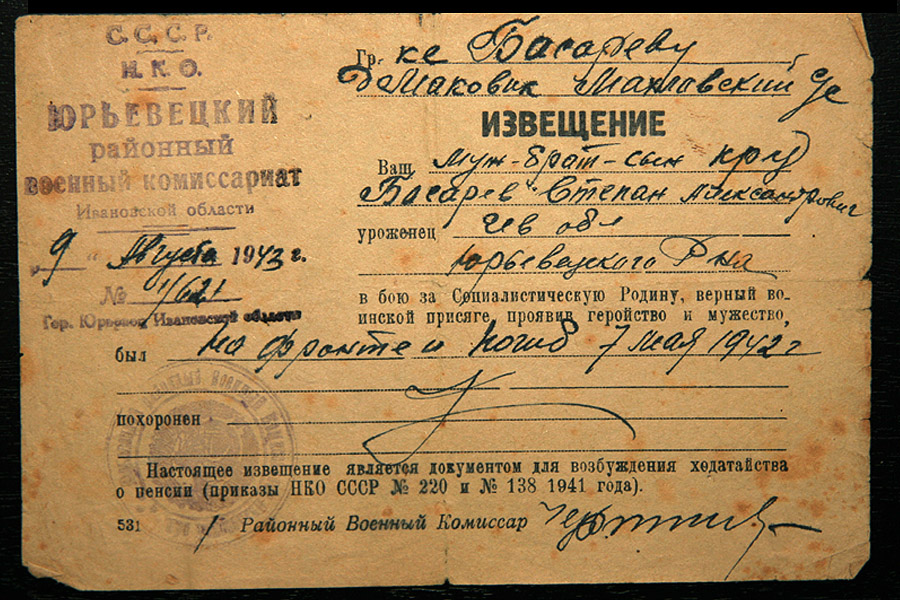 С.С.С.Р.
Н.К.О.
ЮРЬЕВЕЦКИЙ
районный
военный комиссариат
Ивановской области
„9" Августа 1943 г.
№ 1/621
Гор. Юрьевец Ивановской области
Гр. ке Басареву
Махловский с/с
ИЗВЕЩЕНИЕ
Ваш муж-брат-сын кр-ц
Басарев Степан Александрович
уроженец обл
Юрьевецкого Р на
в бою за Социалистическую Родину, верный во-
инской присяге, проявив геройство и мужество,
был на фронте и погиб 7 мая 1942 г
похоронен
Настоящее извещение является документом для возбуждения ходатайства
о пенсии (приказы НКО СССР № 220 и № 138 1941 года).
531 Районный Военный Комиссар